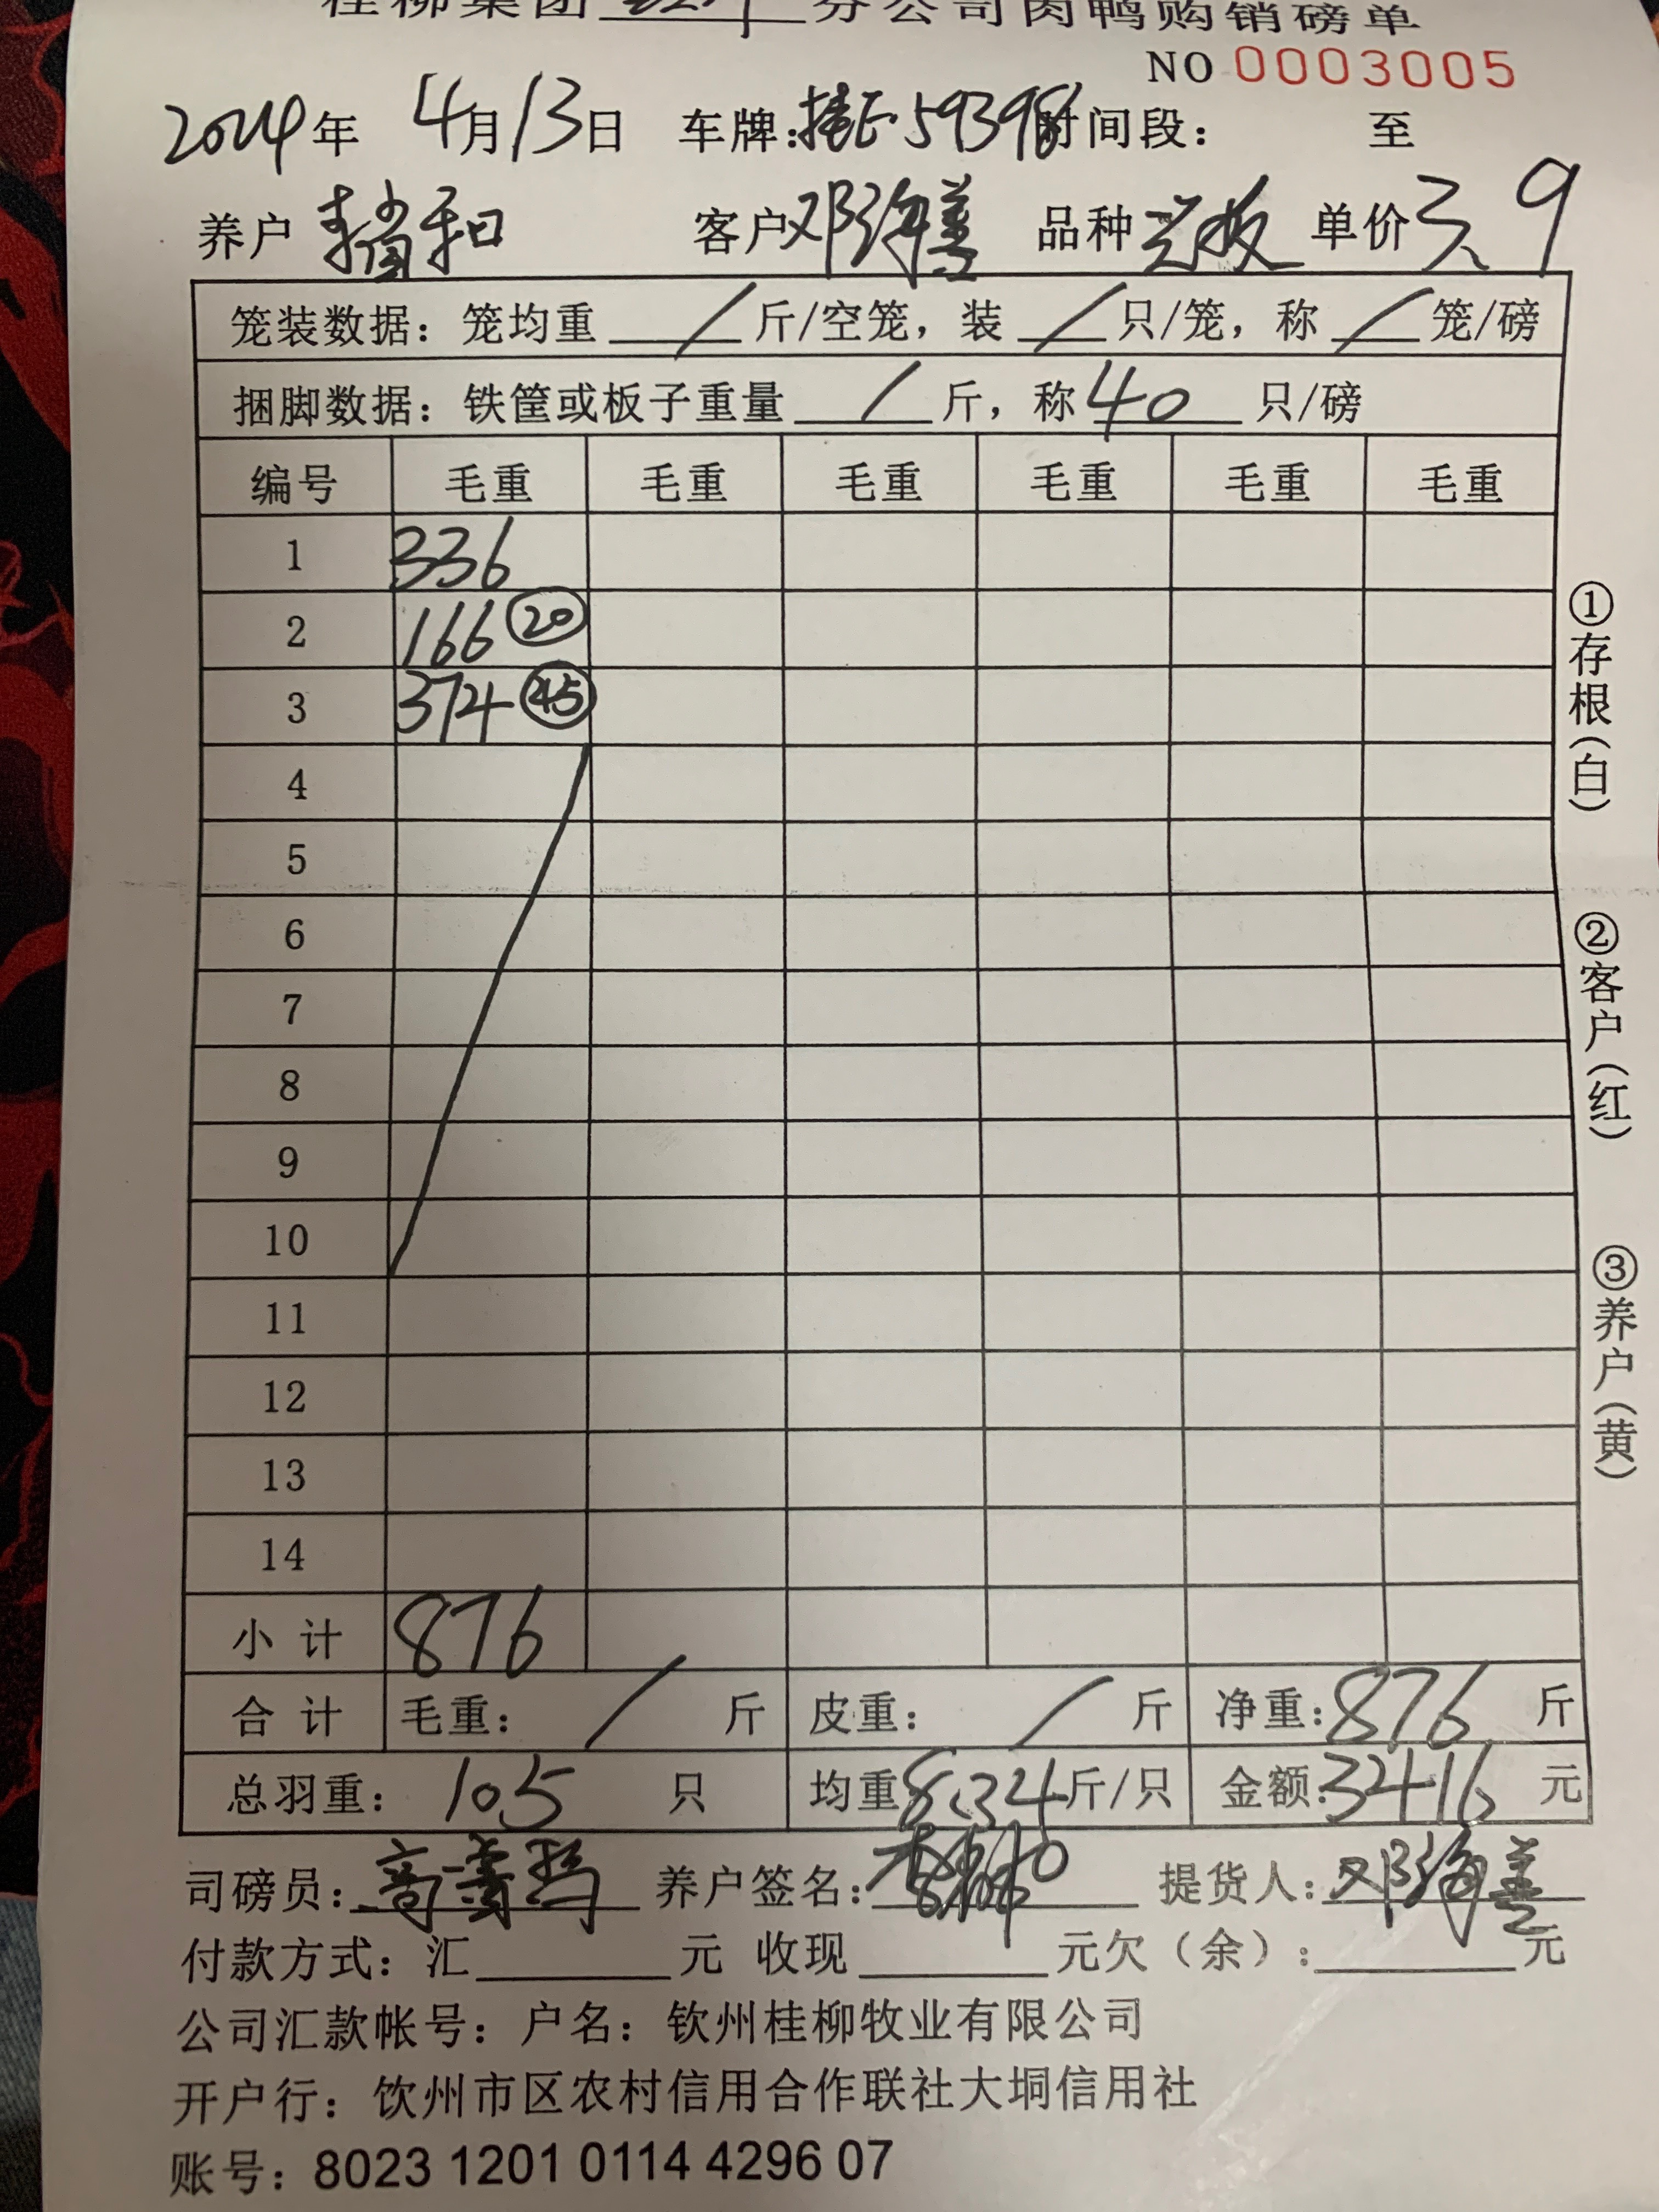 桂柳集团 分公司肉鸭购销磅单
NO 0003005
2024年 4月13日 车牌: 桂E·59398 时间段: 至
养户 和 客户 邓海善 品种 板 单价 3.9
笼装数据: 笼均重 / 斤/空笼, 装 / 只/笼, 称 / 笼/磅
捆脚数据: 铁筐或板子重量 / 斤, 称 40 只/磅
编号 毛重 毛重 毛重 毛重 毛重 毛重
1 336
2 166 ⑳
3 374 ㊺
4
5
6
7
8
9
10
11
12
13
14
小计 876
合计 毛重: / 斤 皮重: / 斤 净重: 876 斤
总羽重: 105 只 均重 8.34 斤/只 金额: 3416 元
司磅员: 养户签名: 提货人: 邓海善
付款方式: 汇 元 收现 元欠(余): 元
公司汇款帐号: 户名: 钦州桂柳牧业有限公司
开户行: 钦州市区农村信用合作联社大垌信用社
账号: 8023 1201 0114 4296 07
①存根(白)
②客户(红)
③养户(黄)